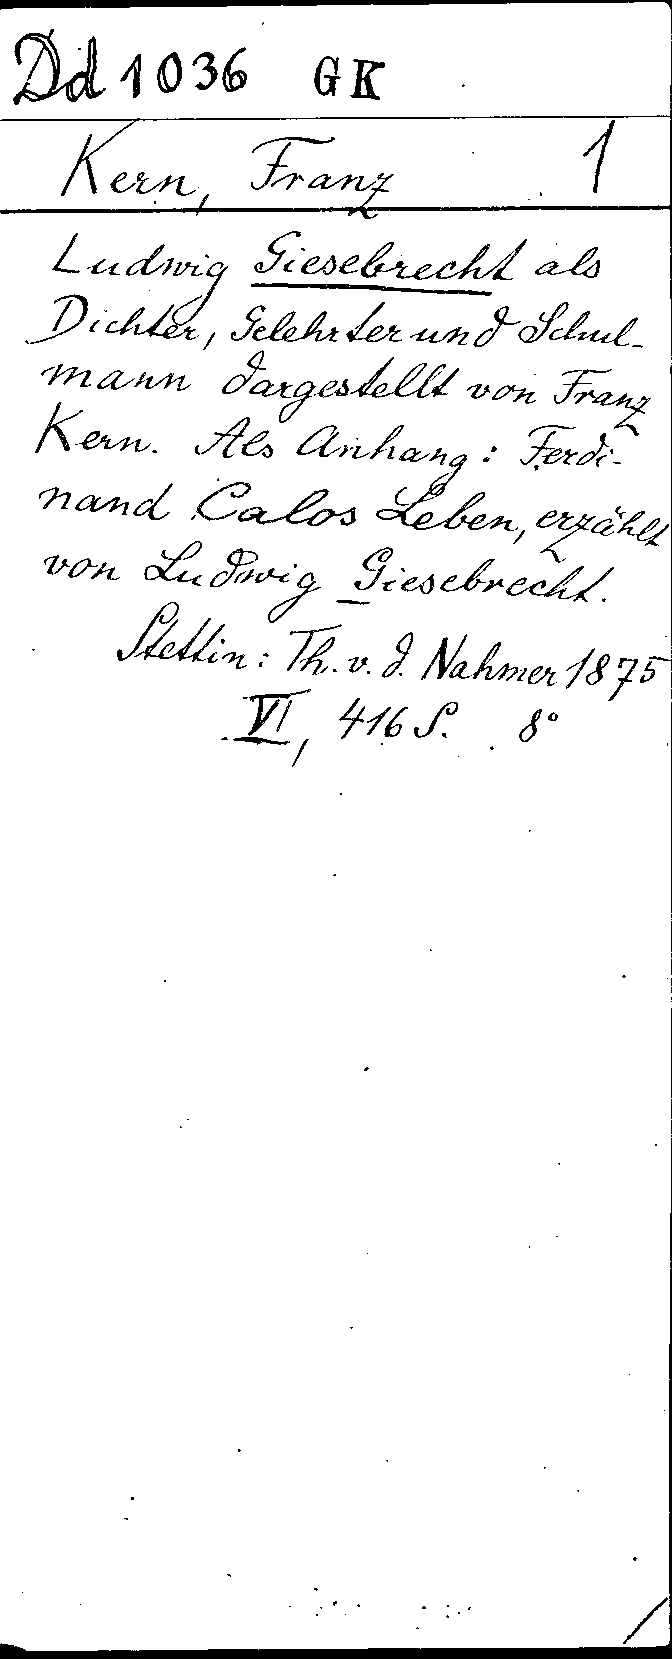 Dd 1036 GK
Kern, Franz 1
Ludwig Giesebrecht als
Dichter, Gelehrter und Schul-
mann dargestellt von Franz
Kern. Als Anhang: Ferdi-
nand Calos Leben, erzählt
von Ludwig Giesebrecht.
Stettin: Th. v. d. Nahmer 1875
VI, 416 S. 8°